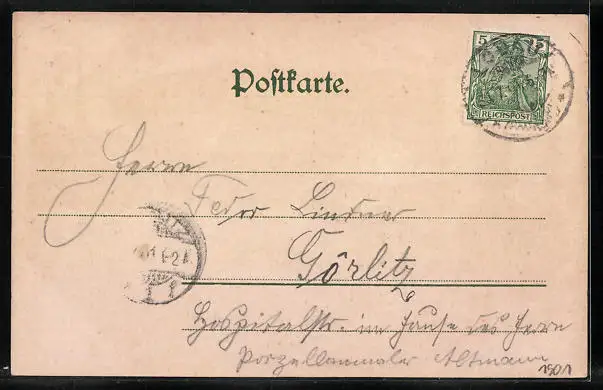 Postkarte.
5 5
REICHSPOST
Herrn
Fedor Lindner
Görlitz
Hospitalstr. im Hause des Herrn
Porzellanmaler Altmann
1901